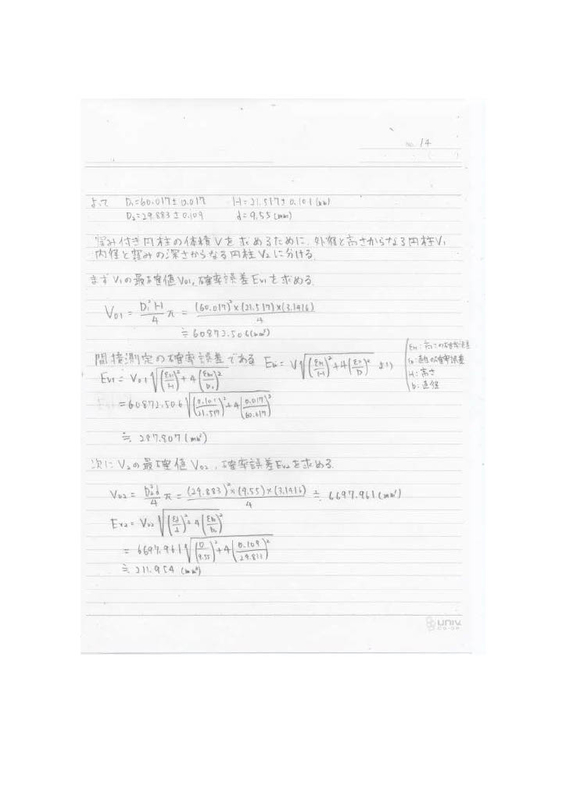 no. 14
よって D₁=60.017±0.017 H=21.517±0.101(mm)
D₂=29.883±0.109 d=9.55(mm)
窪み付き円柱の体積Vを求めるために、外径と高さからなる円柱V₁
内径と窪みの深さからなる円柱V₂に分ける。
まずV₁の最確値V₀₁,確率誤差Ev₁を求める
V₀₁ = D₁²H/4 π = (60.017)²×(21.517)×(3.1416)/4
≒ 60872.506(mm³)
間接測定の確率誤差である Ev = V√((EH/H)²+4(ED/D)²) より
EH:高さの確率誤差
ED:直径の確率誤差
H:高さ
D:直径
Ev₁ = V₀₁√((EH/H)²+4(ED₁/D₁)²)
=60872.506√((0.101/21.517)²+4(0.017/60.017)²)
≒ 287.807(mm³)
次にV₂の最確値V₀₂,確率誤差Ev₂を求める
V₀₂ = D₂²d/4 π = (29.883)²×(9.55)×(3.1416)/4 ≒ 6697.961(mm³)
Ev₂ = V₀₂√((Ed/d)²+4(ED₂/D₂)²)
= 6697.961√((0/9.55)²+4(0.109/29.883)²)
≒ 211.954(mm³)
UNIV
CO-OP